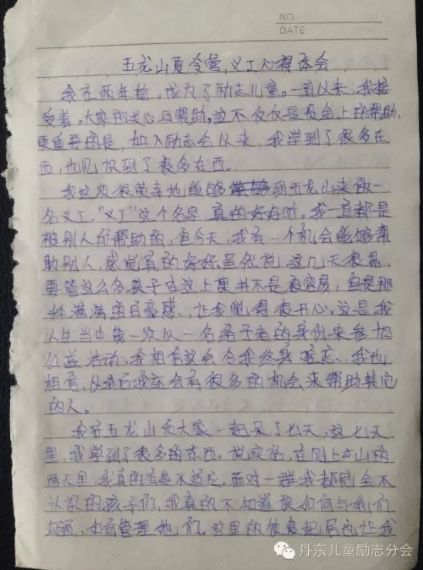 NO
DATE
五龙山夏令营，义工心得体会
我在两年前，成为了励志儿童。一直以来，我接
受着，大家的关心与帮助，这不仅仅是资金上的帮助，
更重要的是，加入励志会以来，我学到了很多东
西，也见识到了很多东西。
我这次很荣幸地能够来到五龙山来做一
名义工，"义工"这个名字真的好好听。我一直都是
被别人所帮助的，但今天，我有一个机会能够帮
助别人，感觉真的好好。虽然说，这几天很累，
要管这么多孩子对这上里并不是很容易，但是那
种满满的自豪感，让我觉得很开心。这是我
人生当中第一次以一名给予者的身份来参加
公益活动，我相信这会令我终身难忘，我也
相信，从今后我会有很多的机会来帮助其它
的人。
我在五龙山和大家一起呆了七天，这七天
里，我学到了很多的东西，说实话，在刚上山的
两天里，我真的有些不适应，面对一群我都完全不
认识的孩子们，我真的不知道该如何与他们
沟通，也有管理他们。这里的住宿起居也让我
丹东儿童励志分会